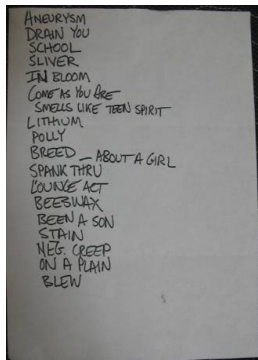 ANEURYSM
DRAIN YOU
SCHOOL
SLIVER
IN BLOOM
COME AS YOU ARE
SMELLS LIKE TEEN SPIRIT
LITHIUM
POLLY
BREED _ ABOUT A GIRL
SPANK THRU
LOUNGE ACT
BEESWAX
BEEN A SON
STAIN
NEG. CREEP
ON A PLAIN
BLEW